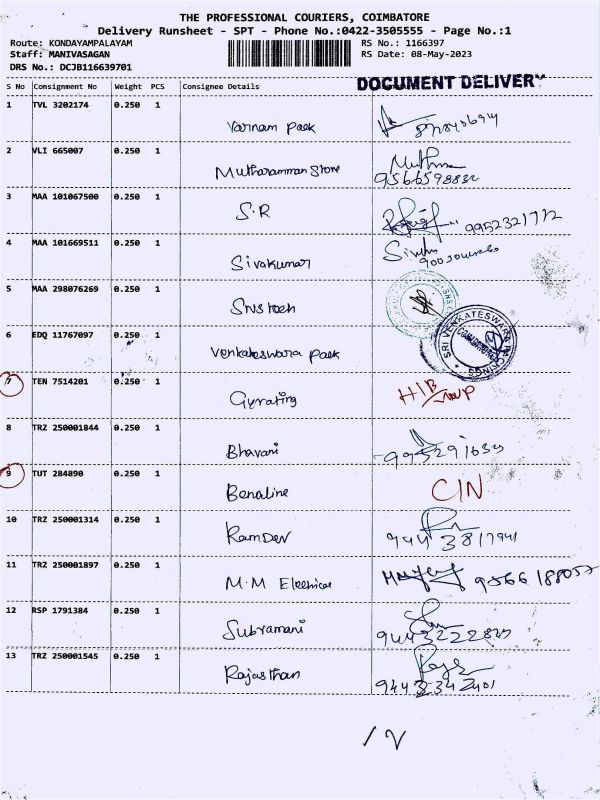 THE PROFESSIONAL COURIERS, COIMBATORE
Delivery Runsheet - SPT - Phone No.:0422-3505555 - Page No.:1
Route: KONDAYAMPALAYAM RS No.: 1166397
Staff: MANIVASAGAN RS Date: 08-May-2023
DRS No.: DCJB116639701
DOCUMENT DELIVERY
S No Consignment No Weight PCS Consignee Details
1 TVL 3202174 0.250 1
Varnam Pack
2 VLI 665007 0.250 1
Mutharamman Store
9566598832
3 MAA 101067500 0.250 1
S.R 9952321772
4 MAA 101669511 0.250 1
Sivakumar
5 MAA 298076269 0.250 1
SNS tech
6 EDQ 11767097 0.250 1
Venkateswara Pack
SRI VENKATESWARA PACKINGS
COIMBATORE
7 TEN 7514201 0.250 1
Gyrating
8 TRZ 250001844 0.250 1
Bhavani
9 TUT 284890 0.250 1
Benaline C/N
10 TRZ 250001314 0.250 1
Ramdev 9443817941
11 TRZ 250001897 0.250 1
M.M Electrical
12 RSP 1791384 0.250 1
Subramani
9443222827
13 TRZ 250001545 0.250 1
Rajasthan
9443342401